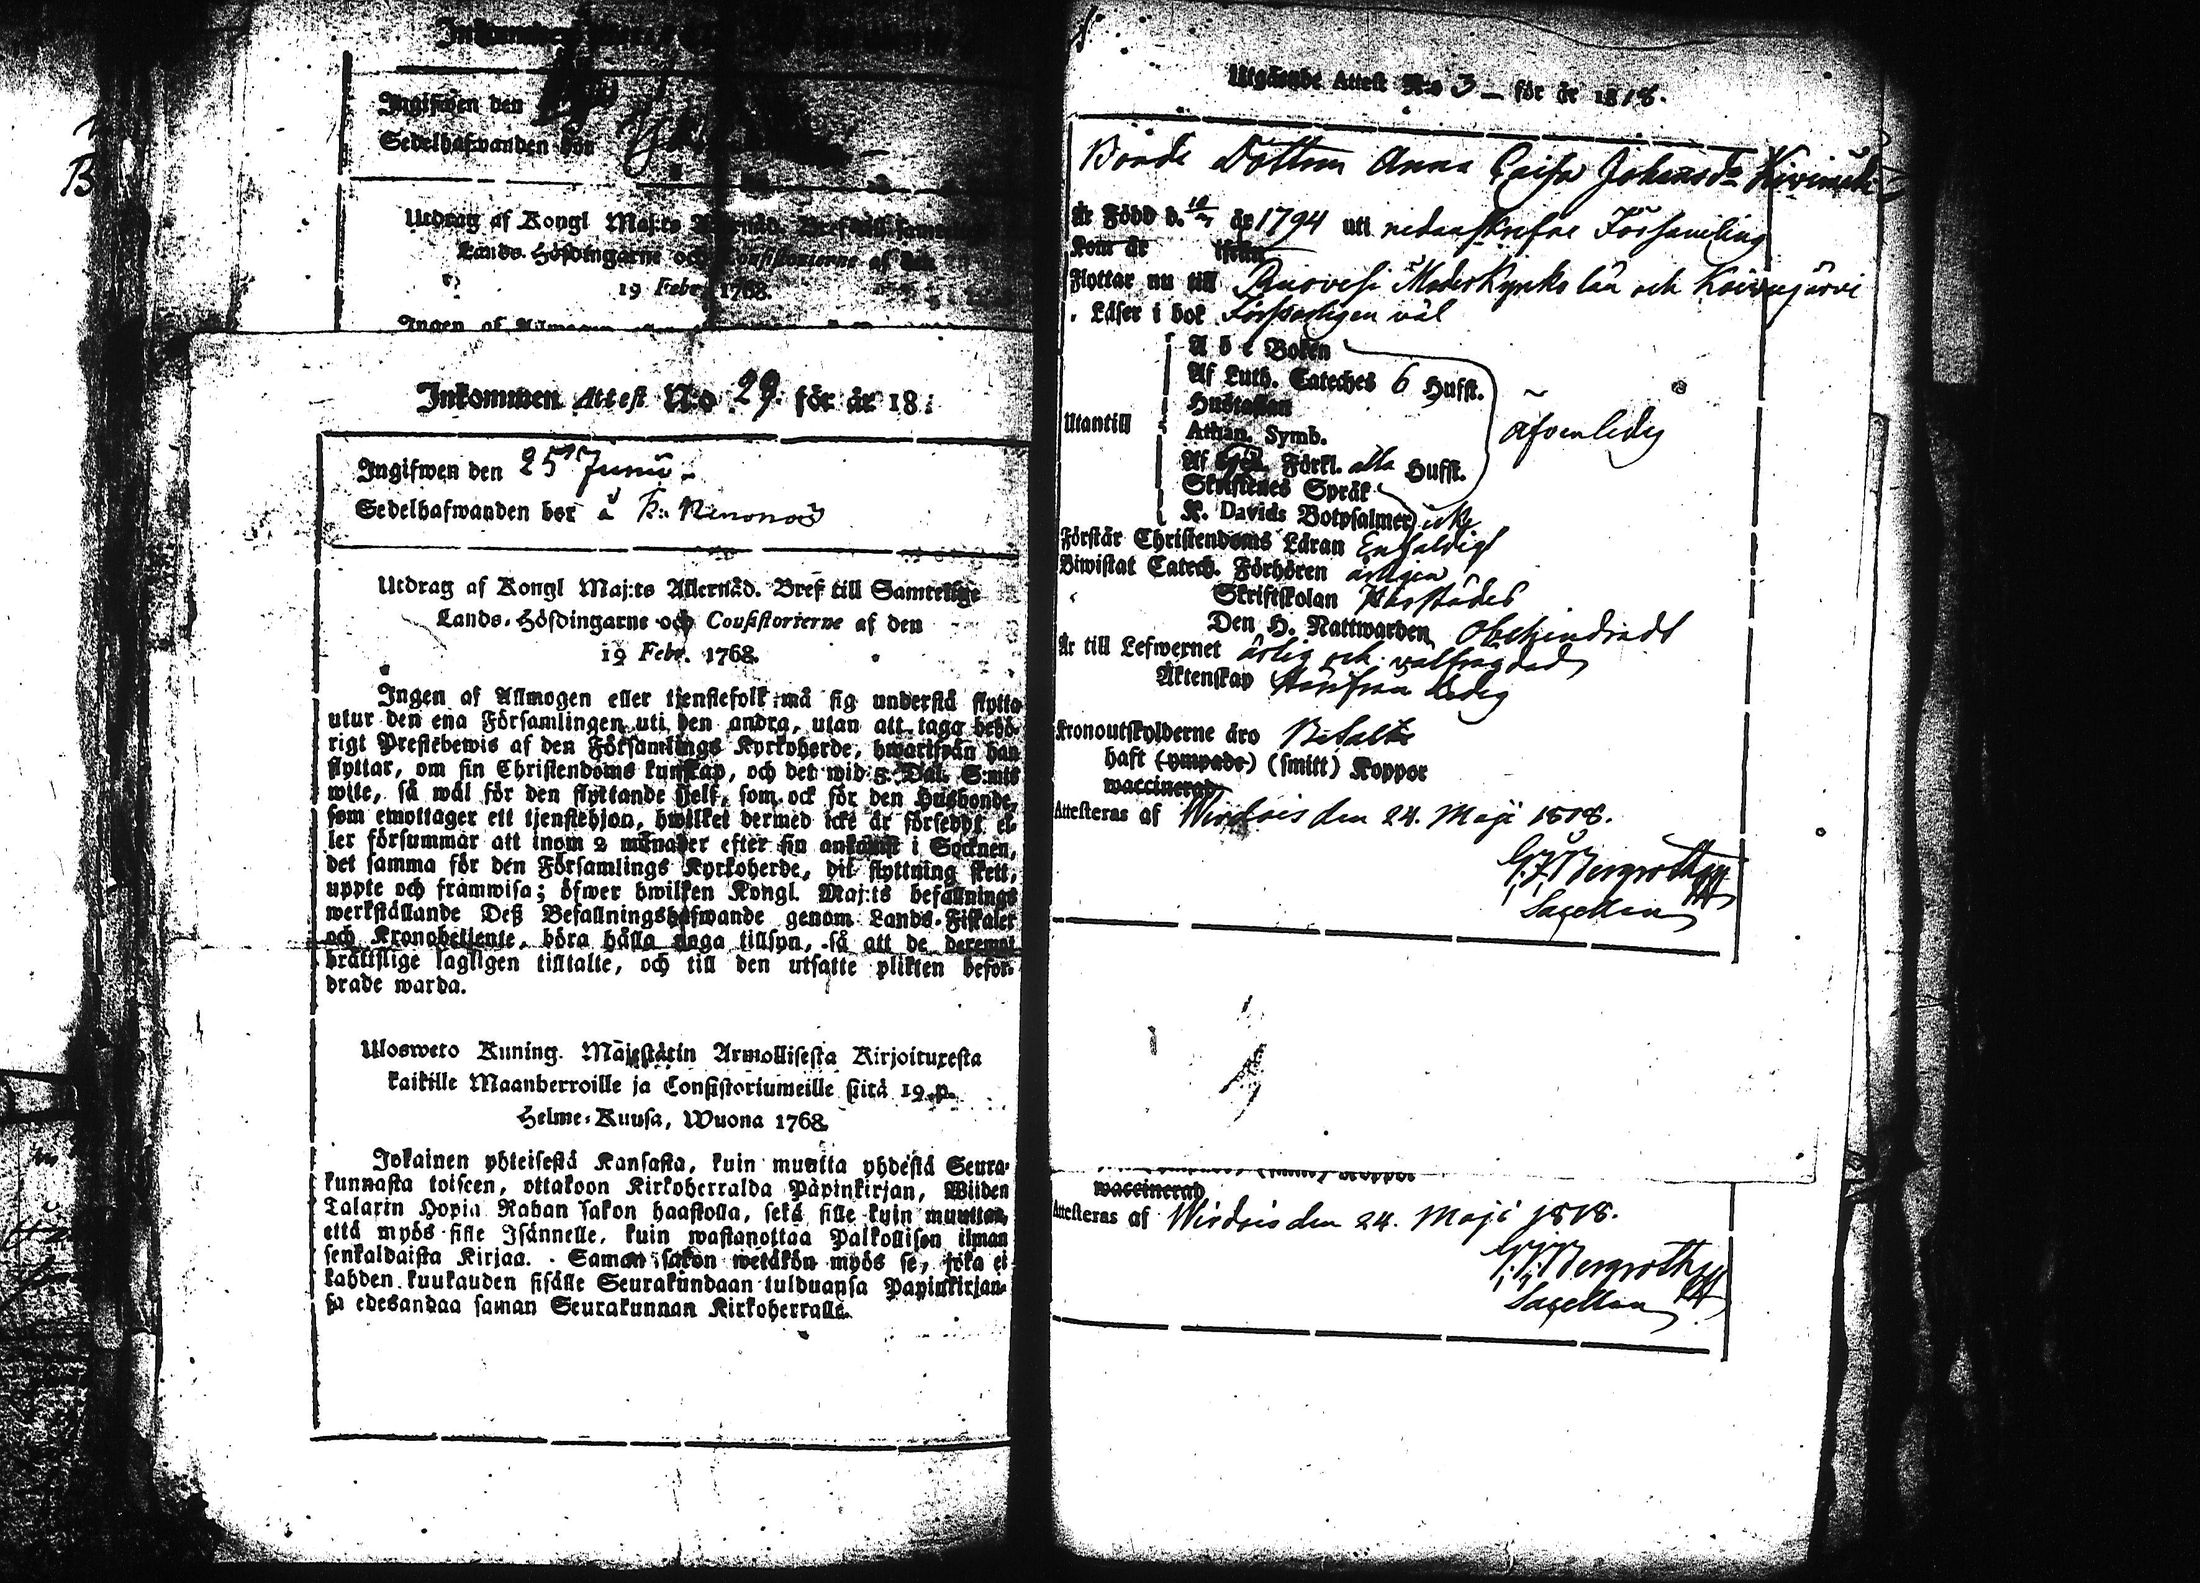 Ingifwen den
Sedelhafwanden bor
Utdrag af Kongl Maj:ts
Lands-Höfdingarne och Consistorierne af den
19 Febr. 1768.
Inkommen Attest N:o 29. för år 18
Ingifwen den 25 Junii
Sedelhafwanden bor å
Utdrag af Kongl Maj:ts Allernåd. Bref till Samtelige
Lands-Höfdingarne och Consistorierne af den
19 Febr. 1768.
Ingen af Allmogen eller tjenstefolk må sig understå flytta
utur den ena Församlingen uti den andra, utan att taga behö-
rigt Prestebewis af den Församlings Kyrkoherde, hwarifrån han
flyttar, om sin Christendoms kunskap, och det wid 5 Dal. S:mts
wite, så wäl för den flyttande sjelf, som ock för den Husbonde,
som emottager ett tjenstehjon, hwilket dermed icke är försedt el-
ler försummar att inom 2 månader efter sin ankomst i Socknen,
det samma för den Församlings Kyrkoherde, dit flyttning skett,
uppte och framwisa; öfwer hwilken Kongl. Maj:ts befallnings
werkställande Deß Befallningshafwande genom Lands-Fiskaler
och Kronobetjente, böra hålla noga tillsyn, så att de deremot
bråttslige lagligen tilltalte, och till den utsatte plikten befor-
drade warda.
Ulosweto Kuning. Majestätin Armollisesta Kirjoituxesta
kaikille Maanherroille ja Consistoriumeille siitä 19.p.
Helme-Kuusa, Wuona 1768.
Jokainen yhteisestä Kansasta, kuin muutta yhdestä Seura-
kunnasta toiseen, ottakoon Kirkoherralda Päpinkirjan, Wiiden
Talarin Hopia Rahan sakon haastolla, sekä sille kuin muuttaa,
että myös sille Isännelle, kuin wastanottaa Palkollisen ilman
senkaldaista Kirjaa. Saman sakon wetäkön myös se, joka ei
kahden kuukauden sisälle Seurakundaan tulduansa Papinkirjan-
sa edesandaa saman Seurakunnan Kirkoherralle.
Utgående Attest N:o 3 — för år 1818.
Bonde Dottren Anna Caisa Johansdr Kivimäki
är Född d. år 1794 uti nedanskrefne Församling
kom år ifrån
flyttar nu till Ruovesi Moderkyrko län och Koivujärvi
Läser i bok Försvarligen väl
Utantill
A b c Boken
Af Luth. Cateches 6 Hufst.
Hustaflan
Athan. Symb.
Af Förkl. alla Hufst.
Skriftenes Språk
K. Davids Botpsalmer icke
Förstår Christendoms Läran Enfaldigt
Biwistat Catech. Förhören årligen
Skriftskolan
Den H. Nattwarden Obehindradt
Är till Lefwernet ärlig och välfrägdad
Äktenskap Härifrån ledig
Kronoutskylderne äro Betalte
haft (ympade) (smitt) Koppor
waccinerad
Attesteras af Wirdois den 24. Maji 1818.
G.J. Bergroth
Sacellan
waccinerad
Attesteras af Wirdois den 24. Maji 1818.
G.J. Bergroth
Sacellan